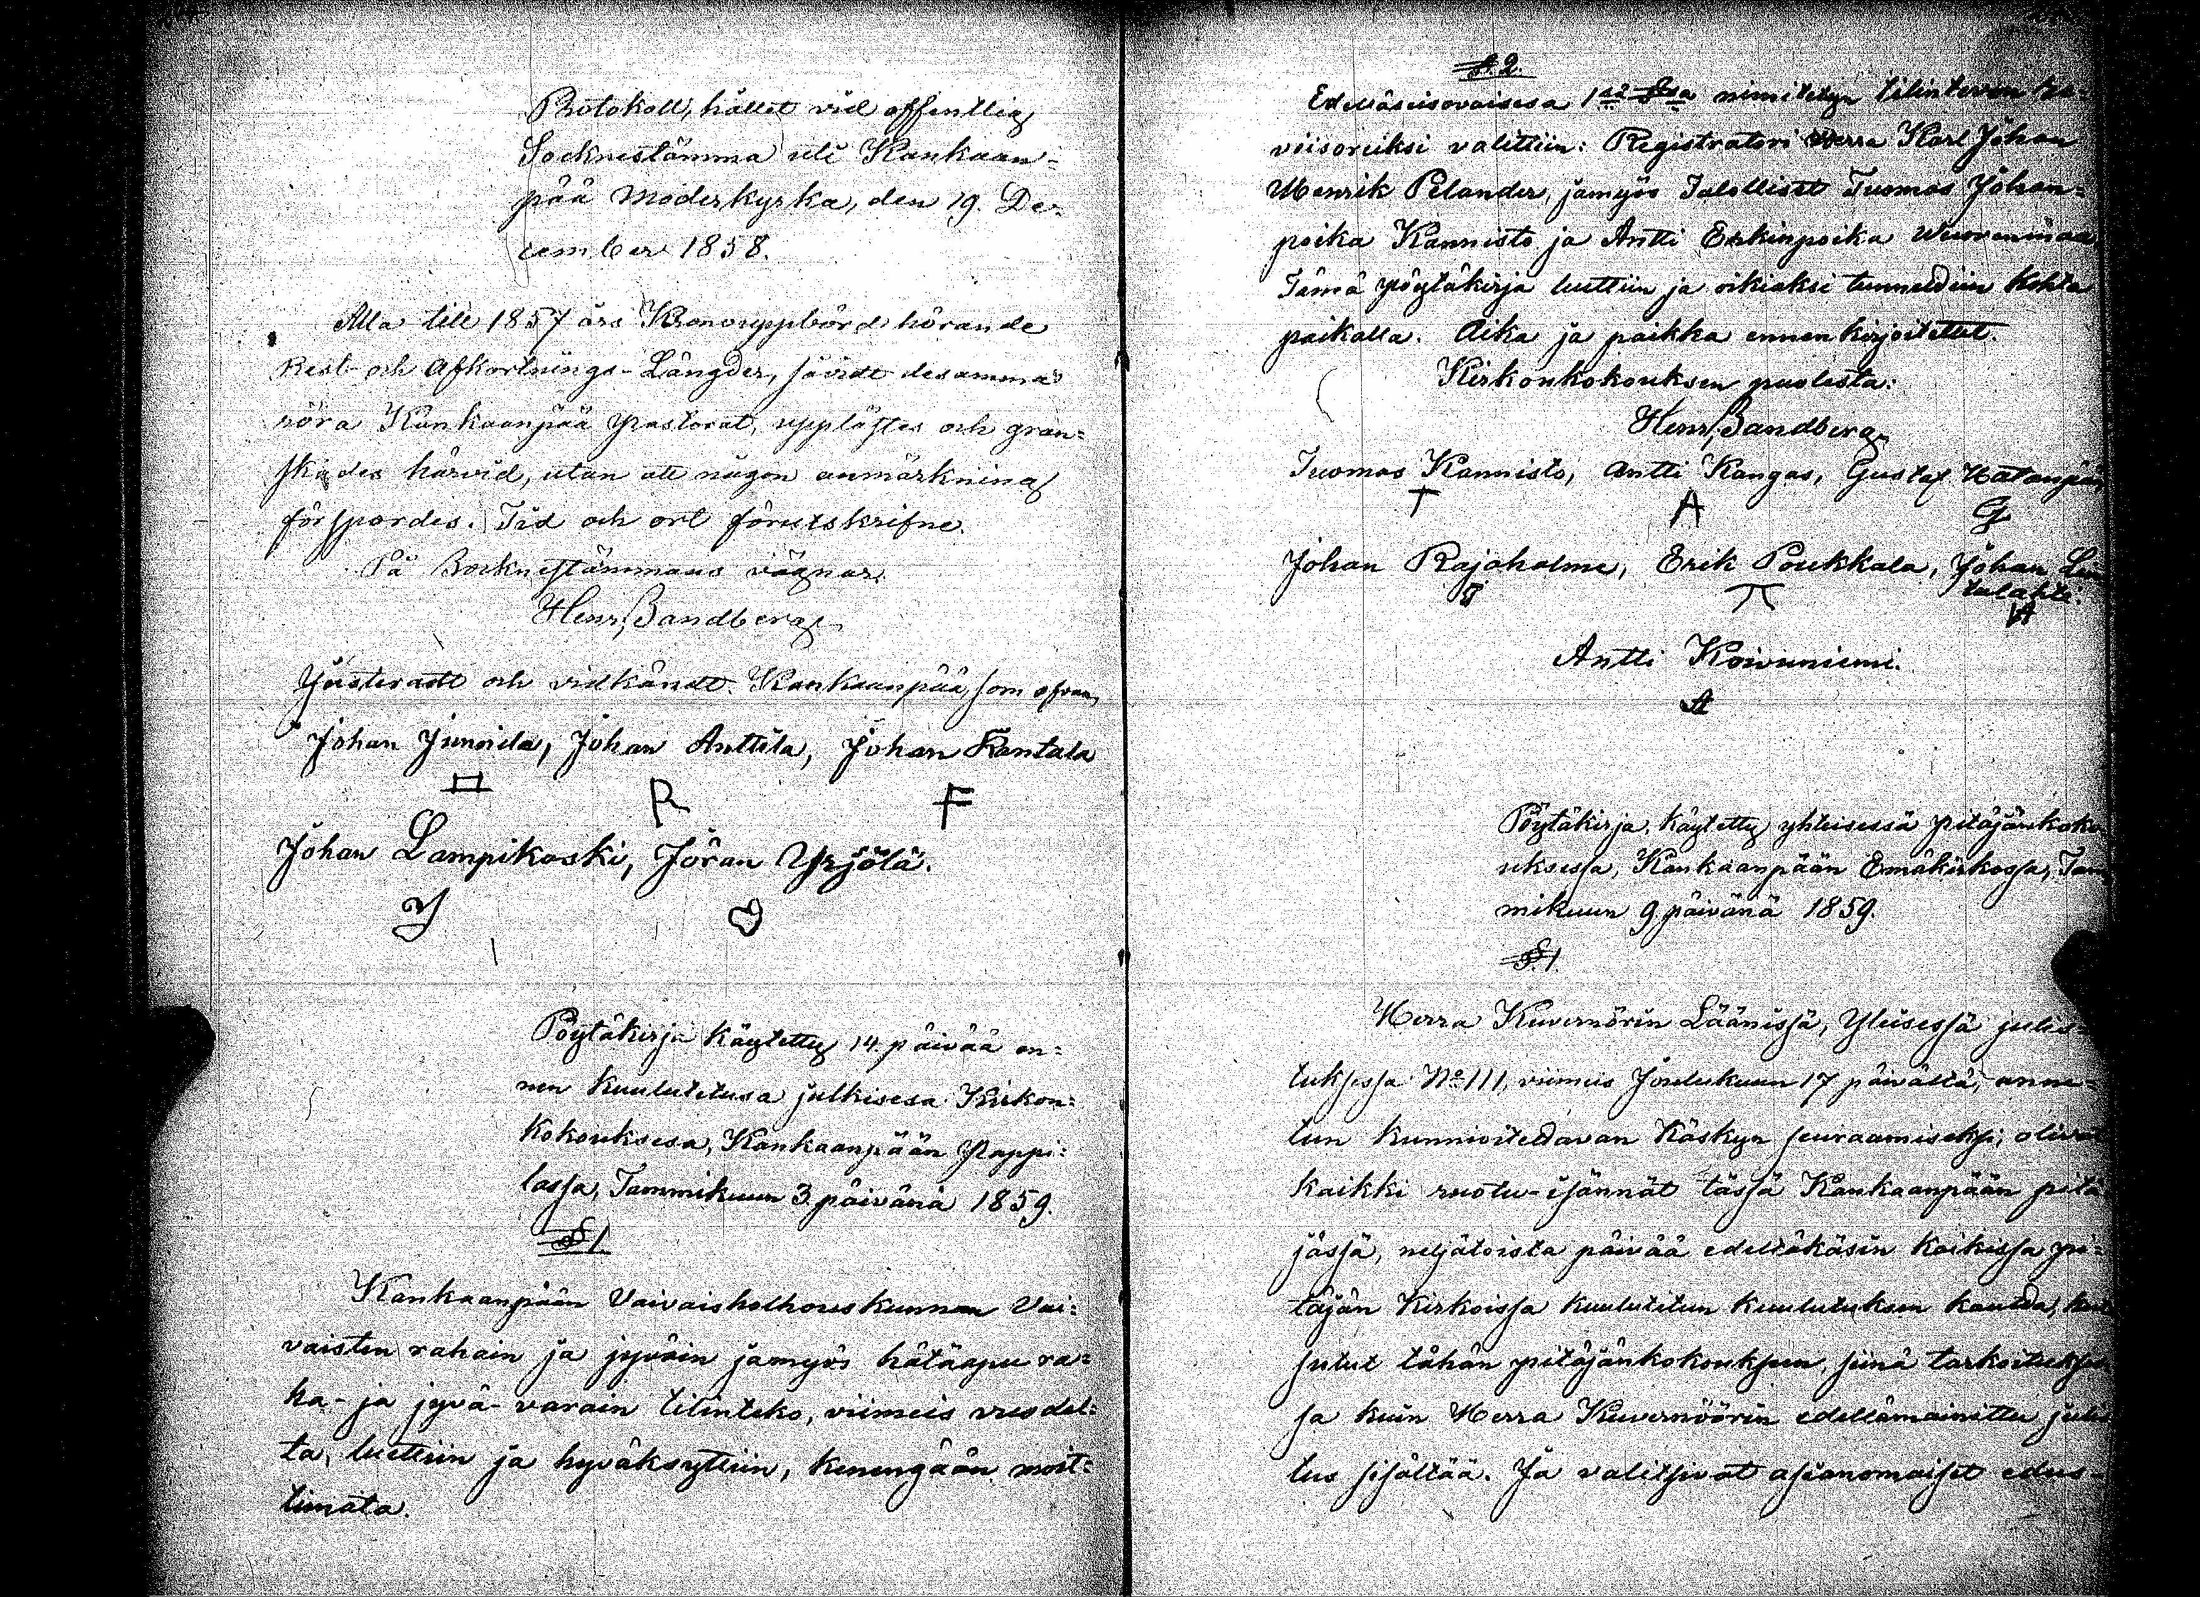 Protokoll, hållet vid offentlig
Socknestämma uti Kankaan-
pää Moderkyrka, den 19. De-
cember 1858.
Alla till 1857 års Kronouppbörd hörande
Rest- och Afkortnings-Längder, såvidt desamma
röra Kankaanpää Pastorat, upplästes och gran-
skades härvid, utan att någon anmärkning
förspordes. Tid och ort föruts krifne.
På Socknestämmans vägnar.
Henr. Sandberg
Justeradt och vidkändt. Kankaanpää, som ofvan,
Johan Junnila, Johan Anttila, Johan Kantala
R F
Johan Lampikoski, Jöran Yrjölä.
Pöytäkirja käytetty 14 päivää en-
nen kuulutetusa julkisesa Kirkon-
kokouksesa, Kankaanpään Pappi-
lassa, Tammikuun 3 päivänä 1859.
§ 1.
Kankaanpään Vaivaisholhouskunnan Vai-
vaisten rahain ja jyväin jamyös hätäapu ra-
ha- ja jyvä-varain tilinteko, viimeis vuodel-
ta, luettiin ja hyväksyttiin, kenengään moit-
timata.
§. 2.
Edelläseisovaisesa 1sä §sa nimitetyn tilintevon
viisoriiksi valittiin: Registratori Herra Karl Johan
Henrik Pelander, jamyös Talolliset Tuomas Johan-
poika Kannisto ja Antti Erkinpoika Wuorenmaa
Tämä pöytäkirja luettiin ja oikiaksi tunnettiin kohta
paikalla. Aika ja paikka ennenkirjoitettut.
Kirkonkokouksen puolesta:
Henr. Sandberg
Tuomas Kannisto, Antti Kangas, Gustaf Hatanpää
T A G
Johan Rajaholma, Erik Poukkala, Johan Lin
talahti.
Antti Koivuniemi.
A
Pöytäkirja, käytetty yhteisessä pitäjänkoko-
uksessa, Kankaanpään Emäkirkossa, Tam-
mikuun 9 päivänä 1859.
§. 1.
Herra Kuvernörin Läänissä, Yleisessä julis-
tuksessa No 111, viimeis Joulukuun 17 päivältä, anne-
tun kunnioitettavan Käskyn seuraamiseksi; olivat
kaikki ruotu-isännät tässä Kankaanpään pitä
jässä, neljätoista päivää edeltäkäsin kaikissa pi-
täjän Kirkoissa kuulutetun kuulutuksen kautta, kut
sutut tähän pitäjänkokouksen, siinä tarkoitukses
sa kuin Herra Kuvernöörin edellämainittu julis
tus sisältää. Ja valitsivat asianomaiset edus-